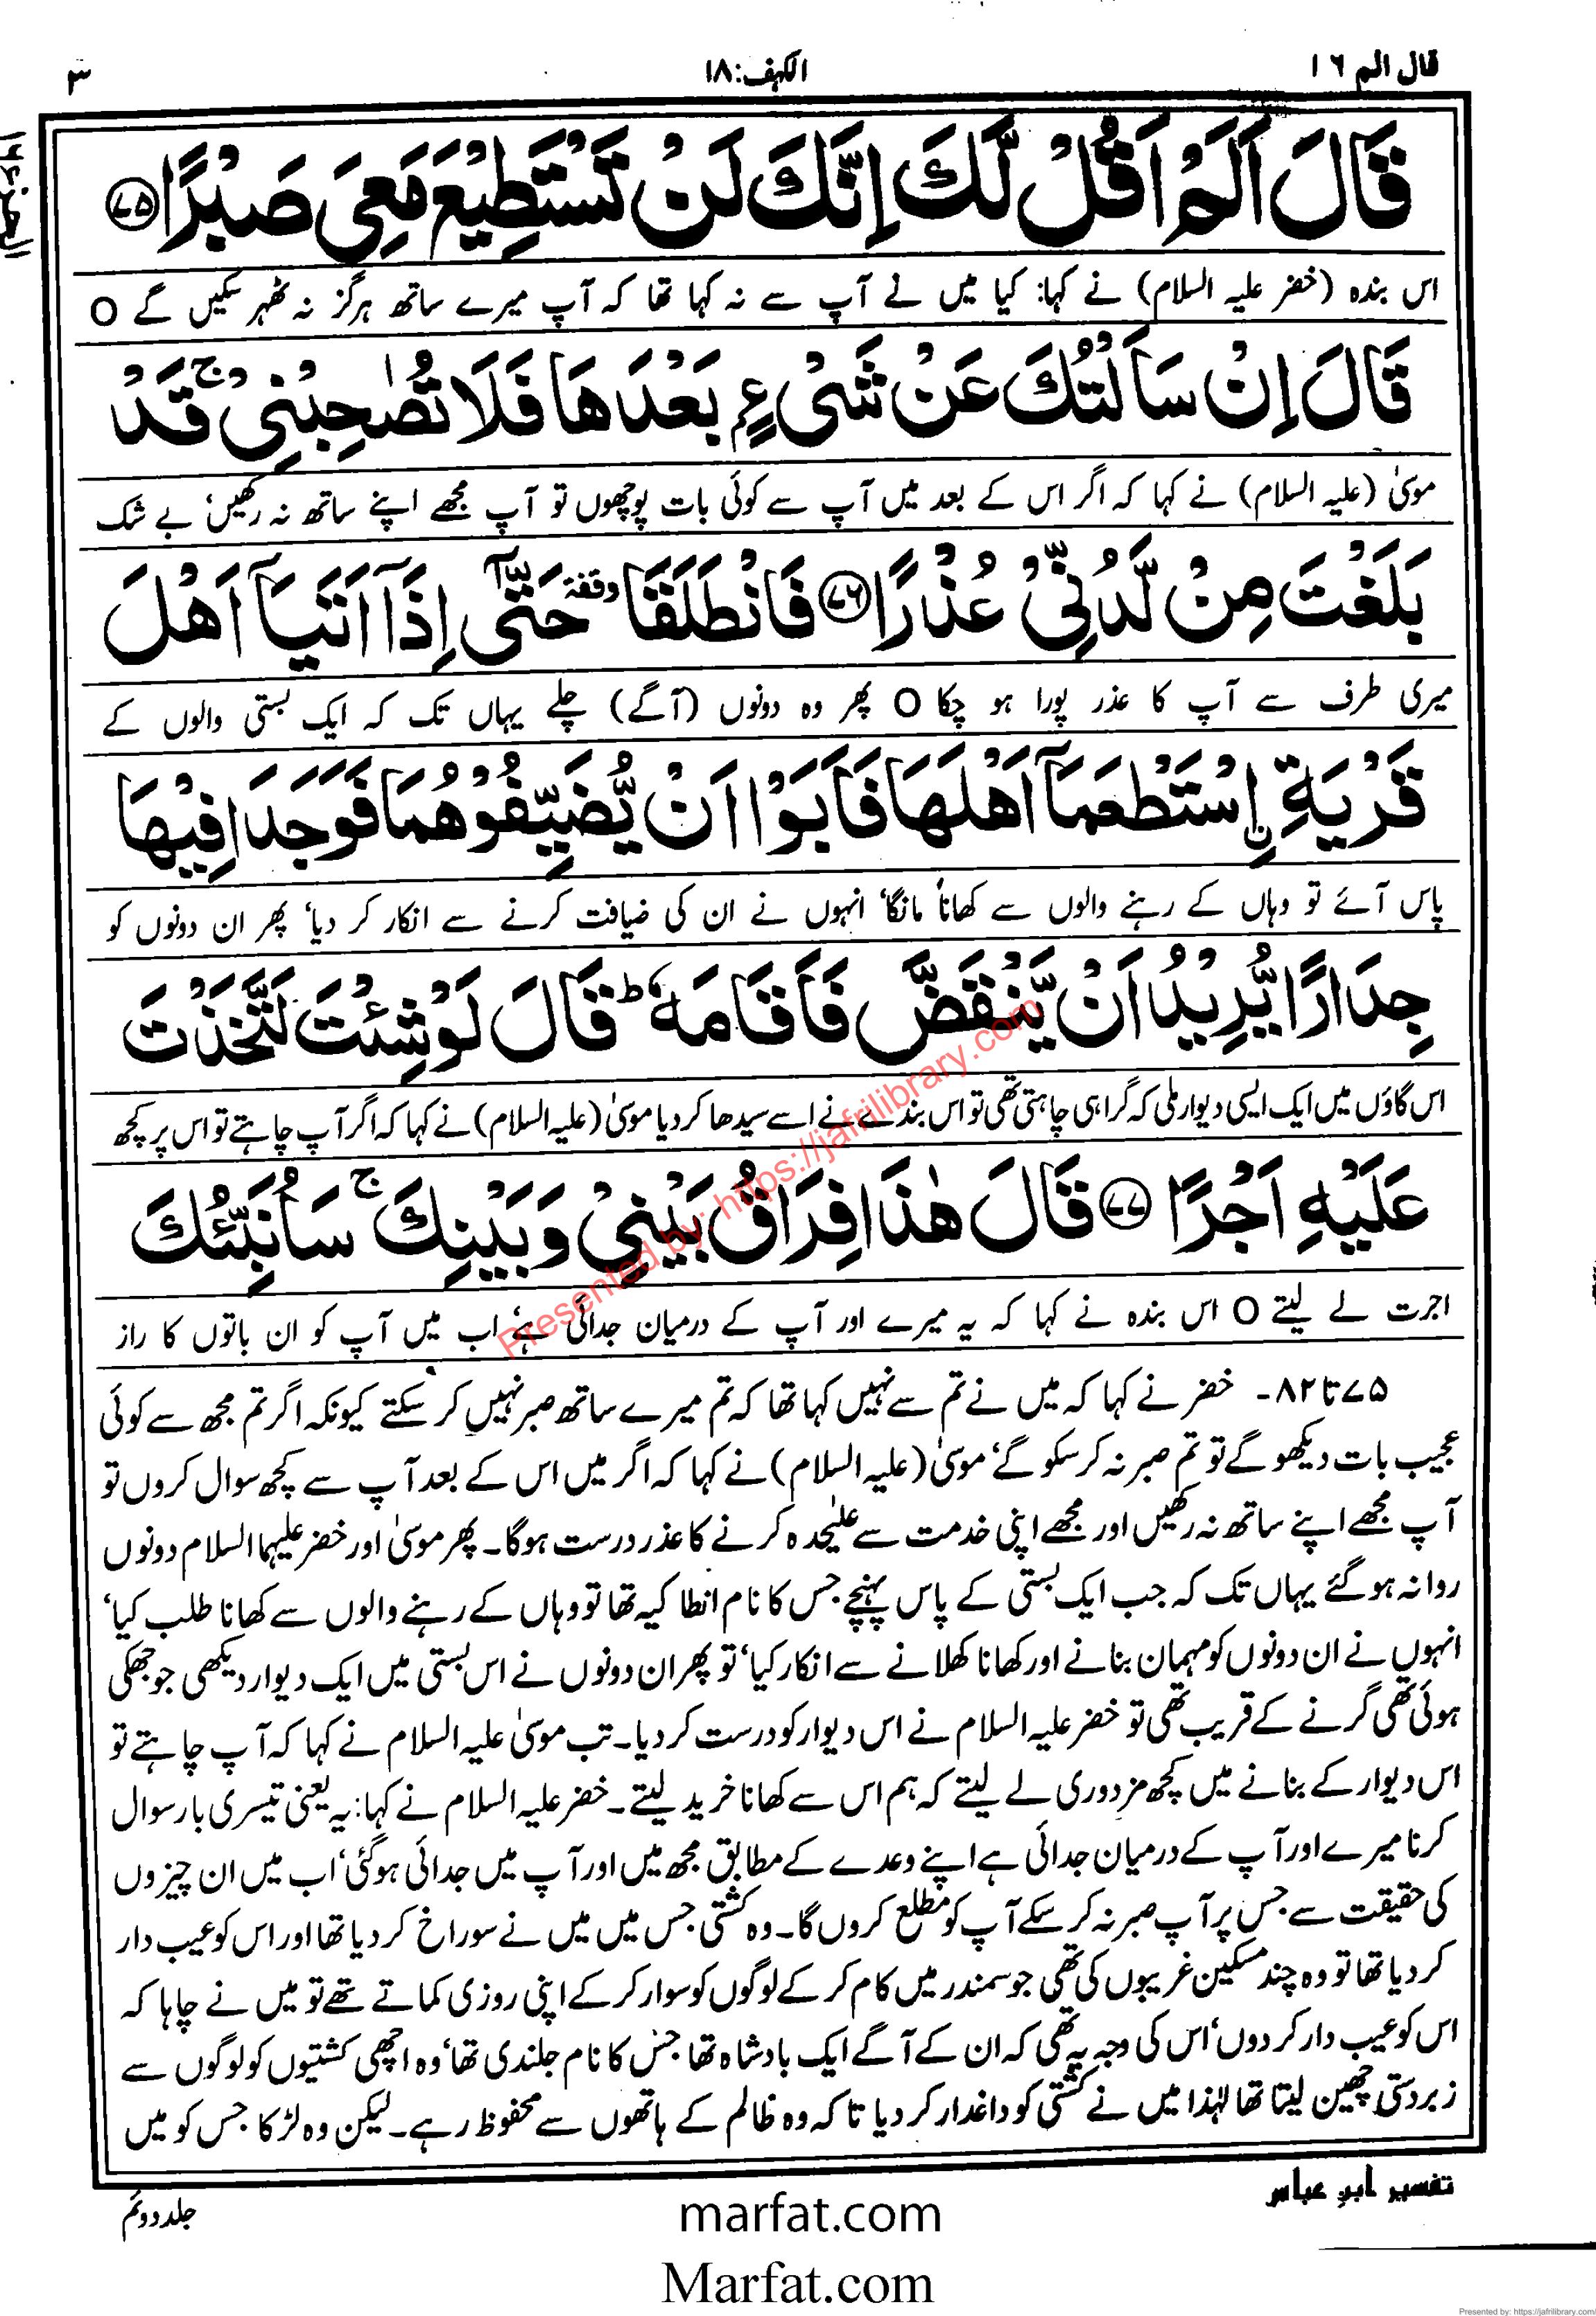 قال الم ١٦
الکہف: ١٨
٣
الجزء ١٦
قَالَ اَلَمْ اَقُلْ لَّكَ اِنَّكَ لَنْ تَسْتَطِيْعَ مَعِيَ صَبْرًا ﴿۷۵﴾
اس بندہ (خضر علیہ السلام) نے کہا: کیا میں نے آپ سے نہ کہا تھا کہ آپ میرے ساتھ ہرگز نہ ٹھہر سکیں گے O
قَالَ اِنْ سَاَلْتُكَ عَنْ شَیْءٍۭ بَعْدَهَا فَلَا تُصٰحِبْنِیْ ۚ قَدْ
موسیٰ (علیہ السلام) نے کہا کہ اگر اس کے بعد میں آپ سے کوئی بات پوچھوں تو آپ مجھے اپنے ساتھ نہ رکھیں' بے شک
بَلَغْتَ مِنْ لَّدُنِّیْ عُذْرًا ﴿۷۶﴾ فَانْطَلَقَا وقفۃ حَتّٰۤی اِذَاۤ اَتَيَاۤ اَهْلَ
میری طرف سے آپ کا عذر پورا ہو چکا O پھر وہ دونوں (آگے) چلے یہاں تک کہ ایک بستی والوں کے
قَرْيَةِ ِۨاسْتَطْعَمَاۤ اَهْلَهَا فَاَبَوْا اَنْ يُّضَيِّفُوْهُمَا فَوَجَدَا فِيْهَا
پاس آئے تو وہاں کے رہنے والوں سے کھانا مانگا' انہوں نے ان کی ضیافت کرنے سے انکار کر دیا' پھر ان دونوں کو
جِدَارًا يُّرِيْدُ اَنْ يَّنْقَضَّ فَاَقَامَهٗ ؕ قَالَ لَوْ شِئْتَ لَتَّخَذْتَ
اس گاؤں میں ایک ایسی دیوار ملی کہ گرا ہی چاہتی تھی تو اس بندے نے اسے سیدھا کر دیا موسیٰ (علیہ السلام) نے کہا کہ اگر آپ چاہتے تو اس پر کچھ
عَلَيْهِ اَجْرًا ﴿۷۷﴾ قَالَ هٰذَا فِرَاقُ بَيْنِیْ وَبَيْنِكَ ۚ سَاُنَبِّئُكَ
اجرت لے لیتے O اس بندہ نے کہا کہ یہ میرے اور آپ کے درمیان جدائی ہے' اب میں آپ کو ان باتوں کا راز
۷۵ تا ۸۲۔ خضر نے کہا کہ میں نے تم سے نہیں کہا تھا کہ تم میرے ساتھ صبر نہیں کر سکتے کیونکہ اگر تم مجھ سے کوئی
عجیب بات دیکھو گے تو تم صبر نہ کر سکو گے' موسیٰ (علیہ السلام) نے کہا کہ اگر میں اس کے بعد آپ سے کچھ سوال کروں تو
آپ مجھے اپنے ساتھ نہ رکھیں اور مجھے اپنی خدمت سے علیٰحدہ کرنے کا عذر درست ہوگا۔ پھر موسیٰ اور خضر علیہما السلام دونوں
روانہ ہو گئے یہاں تک کہ جب ایک بستی کے پاس پہنچے جس کا نام انطاکیہ تھا تو وہاں کے رہنے والوں سے کھانا طلب کیا'
انہوں نے ان دونوں کو مہمان بنانے اور کھانا کھلانے سے انکار کیا' تو پھر ان دونوں نے اس بستی میں ایک دیوار دیکھی جو جھکی
ہوئی تھی گرنے کے قریب تھی تو خضر علیہ السلام نے اس دیوار کو درست کر دیا۔ تب موسیٰ علیہ السلام نے کہا کہ آپ چاہتے تو
اس دیوار کے بنانے میں کچھ مزدوری لے لیتے کہ ہم اس سے کھانا خرید لیتے۔ خضر علیہ السلام نے کہا: یہ یعنی تیسری بار سوال
کرنا میرے اور آپ کے درمیان جدائی ہے اپنے وعدے کے مطابق مجھ میں اور آپ میں جدائی ہوگئی' اب میں ان چیزوں
کی حقیقت سے جس پر آپ صبر نہ کر سکے آپ کو مطلع کروں گا۔ وہ کشتی جس میں میں نے سوراخ کر دیا تھا اور اس کو عیب دار
کر دیا تھا تو وہ چند مسکین غریبوں کی تھی جو سمندر میں کام کر کے لوگوں کو سوار کر کے اپنی روزی کماتے تھے تو میں نے چاہا کہ
اس کو عیب دار کر دوں' اس کی وجہ یہ تھی کہ ان کے آگے ایک بادشاہ تھا جس کا نام جلندی تھا' وہ اچھی کشتیوں کو لوگوں سے
زبردستی چھین لیتا تھا لہٰذا میں نے کشتی کو داغدار کر دیا تا کہ وہ ظالم کے ہاتھوں سے محفوظ رہے۔ لیکن وہ لڑکا جس کو میں
Presented by: https://jafrilibrary.com
تفسیر ابن عباس
جلد دوئم
marfat.com
Marfat.com
Presented by: https://jafrilibrary.com/